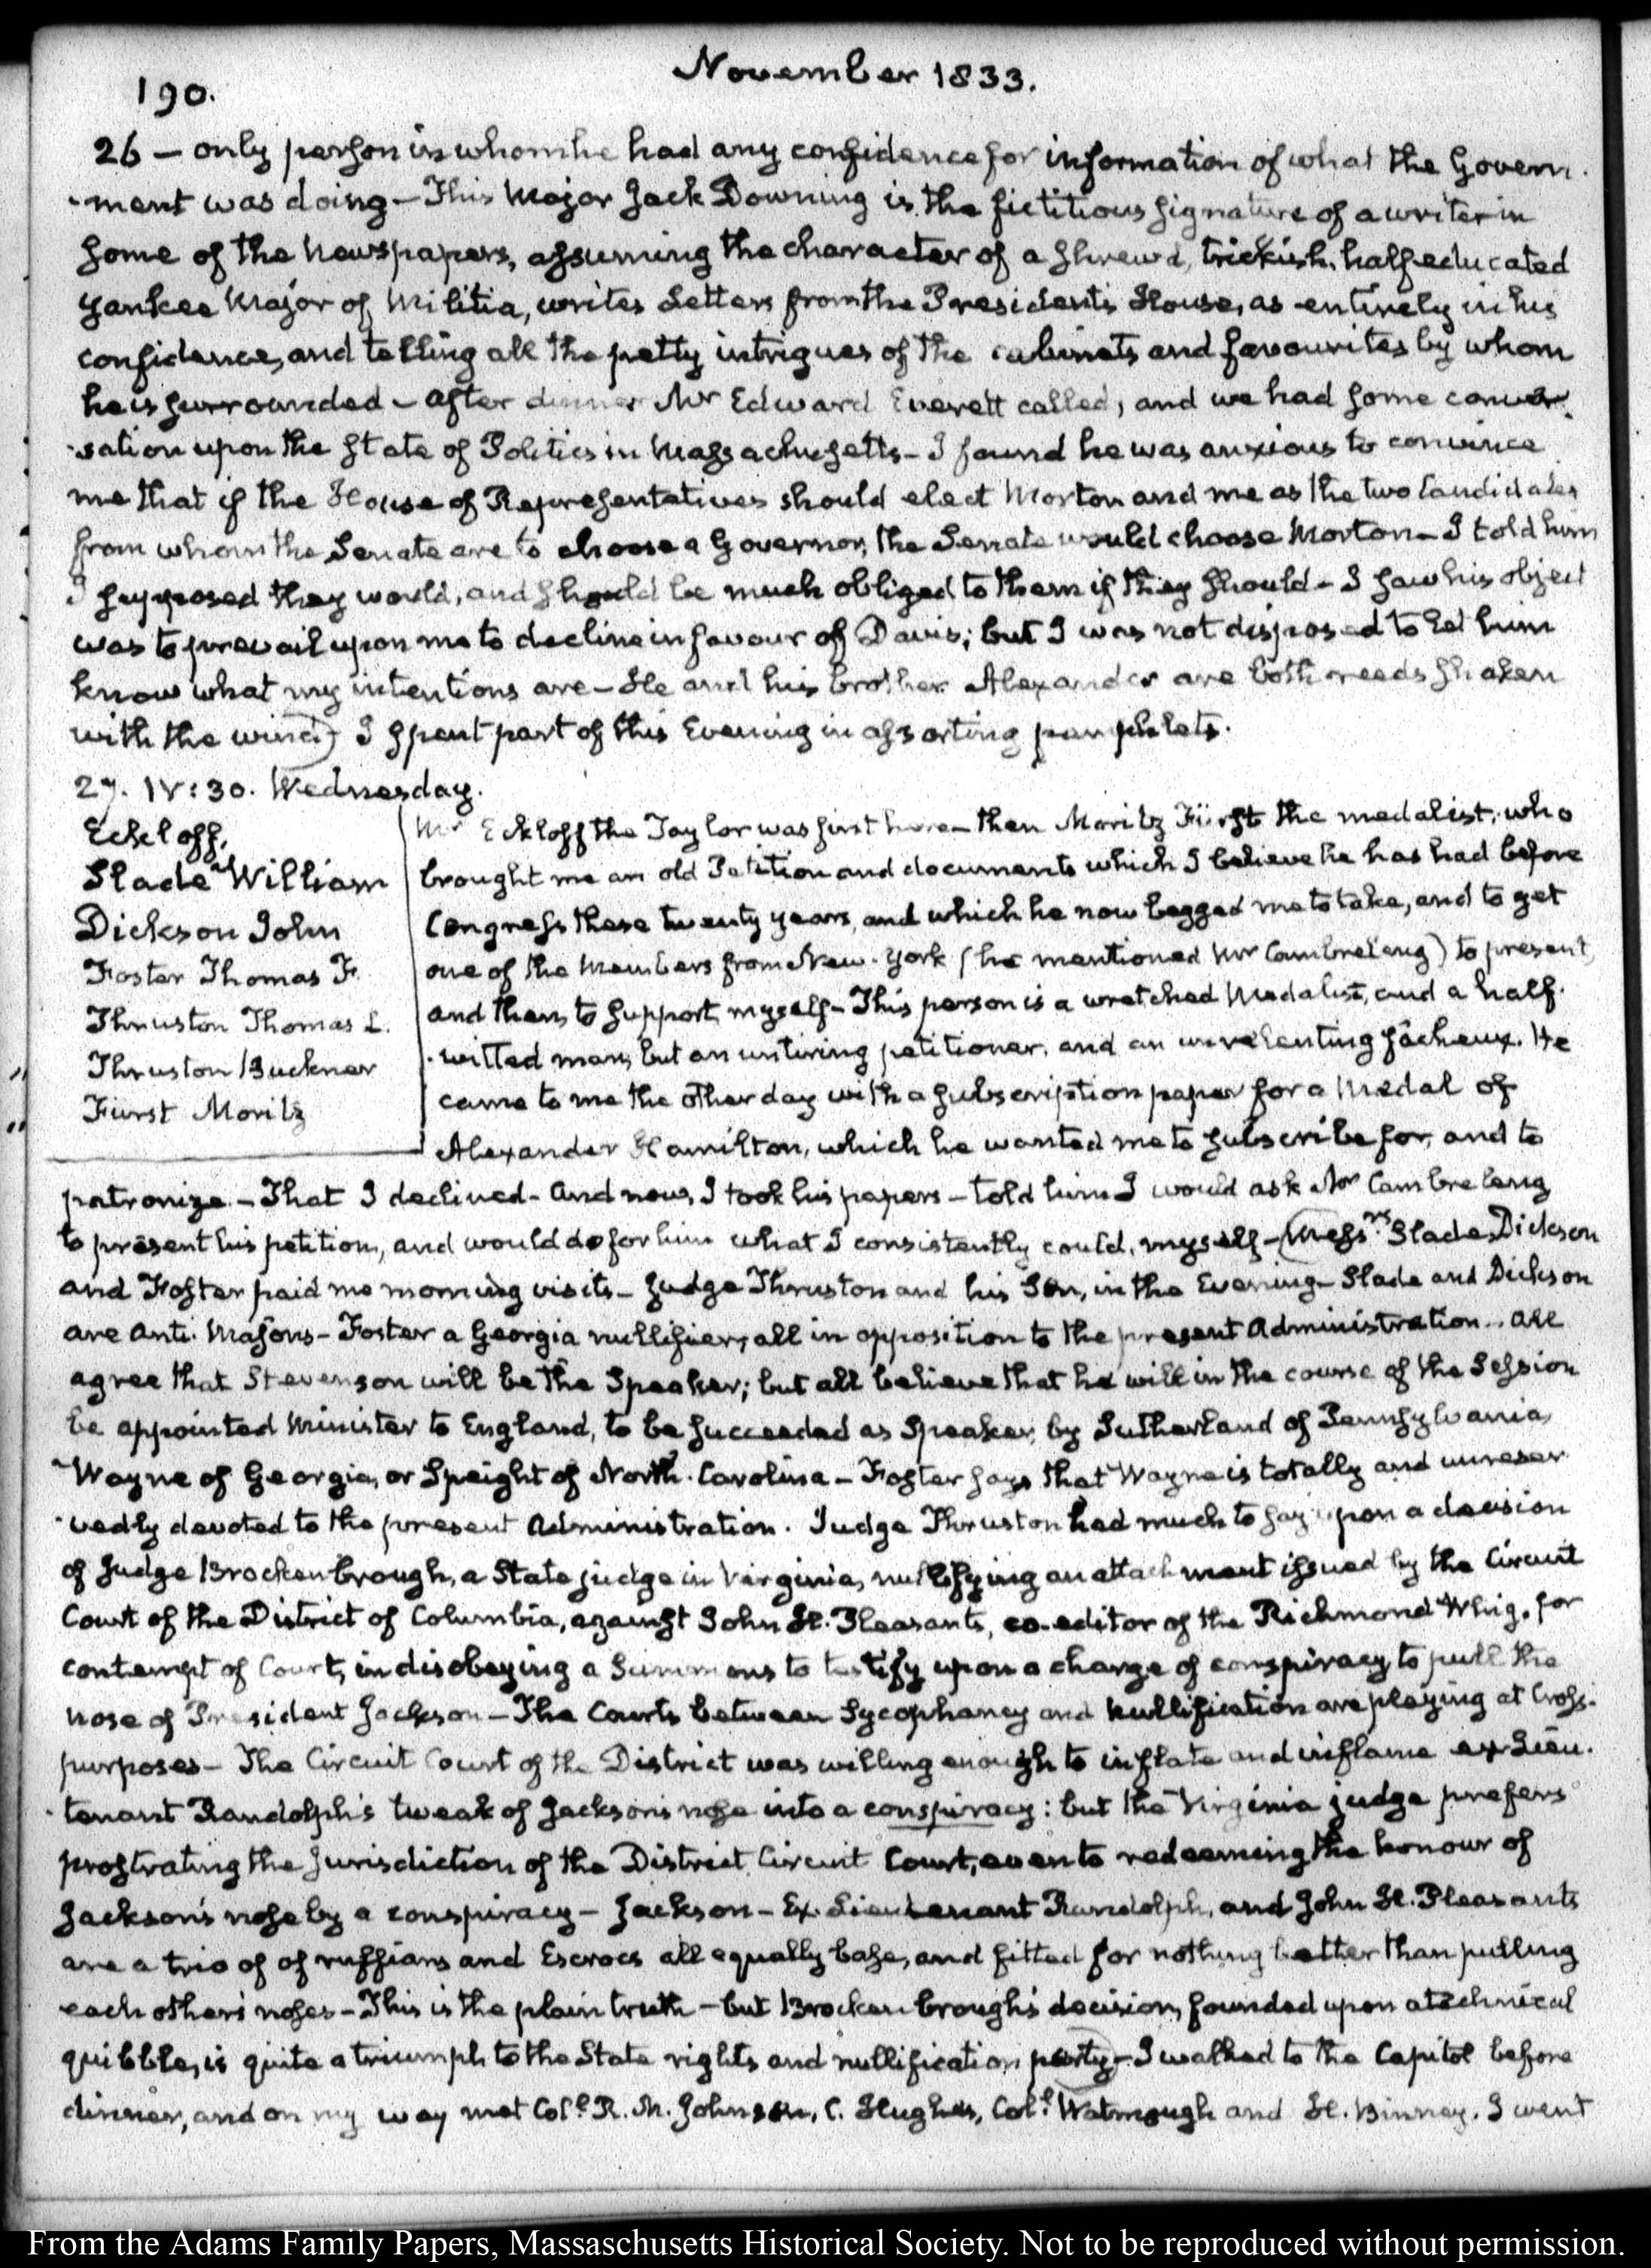 190.
November 1833.
26 — only person in whom he had any confidence for information of what the Govern-
-ment was doing — This Major Jack Downing is the fictitious signature of a writer in
some of the Newspapers, assuming the character of a shrewd, trickish, half educated
Yankee Major of Militia, writes Letters from the President's House, as entirely in his
confidence, and telling all the petty intrigues of the cabinets and favourites by whom
he is surrounded — After dinner Mr Edward Everett called, and we had some conver-
-sation upon the State of Politics in Massachusetts — I found he was anxious to convince
me that if the House of Representatives should elect Morton and me as the two Candidates
from whom the Senate are to choose a Governor, the Senate would choose Morton — I told him
I supposed they would, and should be much obliged to them if they should — I saw his object
was to prevail upon me to decline in favour of Davis; but I was not disposed to let him
know what my intentions are — He and his brother Alexander are both reeds shaken
with the wind) I spent part of this Evening in assorting pamphlets.
27. IV:30. Wednesday.
Eckloff,
Slade William
Dickson John
Foster Thomas F.
Thruston Thomas L.
Thruston Buckner
Fürst Moritz
Mr Eckloff the Taylor was first here — then Moritz Fürst the medalist, who
brought me an old Petition and documents which I believe he has had before
Congress these twenty years, and which he now begged me to take, and to get
one of the Members from New-York (he mentioned Mr Cambreleng) to present,
and then, to support, myself — This person is a wretched Medalist, and a half-
-witted man, but an untiring petitioner, and an unrelenting fâcheux. He
came to me the other day with a subscription paper for a Medal of
Alexander Hamilton, which he wanted me to subscribe for, and to
patronize — That I declined — And now, I took his papers — told him I would ask Mr Cambreleng
to present his petition, and would do for him what I consistently could, myself — (Messrs Slade, Dickson
and Foster paid me morning visits — Judge Thruston and his Son, in the Evening — Slade and Dickson
are Anti-Masons — Foster a Georgia nullifier, all in opposition to the present Administration.. All
agree that Stevenson will be the Speaker; but all believe that he will in the course of the Session
be appointed Minister to England, to be succeeded as Speaker, by Sutherland of Pennsylvania,
Wayne of Georgia, or Speight of North-Carolina — Foster says that Wayne is totally and unreser-
-vedly devoted to the present Administration. Judge Thruston had much to say upon a decision
of Judge Brockenbrough, a State judge in Virginia, nullifying an attachment issued by the Circuit
Court of the District of Columbia, against John H. Pleasants, co-editor of the Richmond Whig, for
contempt of Court, in disobeying a Summons to testify upon a charge of conspiracy to pull the
nose of President Jackson — The Courts between Sycophancy and Nullification are playing at Cross-
purposes — The Circuit Court of the District was willing enough to inflate and inflame ex-Lieu-
-tenant Randolph's tweak of Jackson's nose into a conspiracy: but the Virginia judge prefers
prostrating the jurisdiction of the District Circuit Court, even to redeeming the honour of
Jackson's nose by a conspiracy — Jackson — Ex-Lieutenant Randolph, and John H. Pleasants
are a trio of of ruffians and Escrocs all equally base, and fitted for nothing better than pulling
each other's noses — This is the plain truth — but Brockenbrough's decision, founded upon a technical
quibble, is quite a triumph to the State rights and nullification party) — I walked to the Capitol before
dinner, and on my way met Coll. R. M. Johnson, C. Hughes, Coll. Watmough and H. Binney. I went
From the Adams Family Papers, Massachusetts Historical Society. Not to be reproduced without permission.